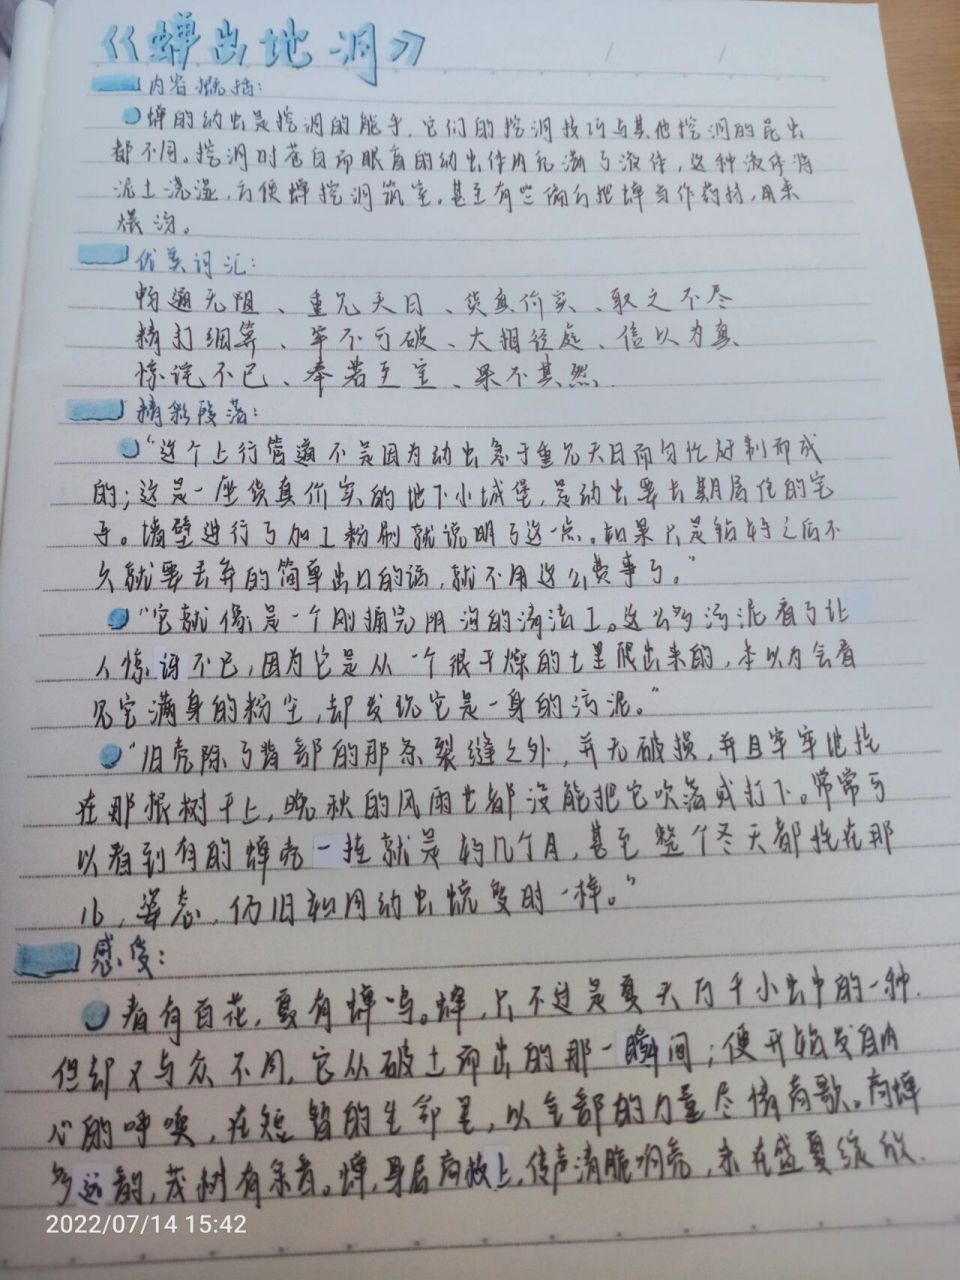 《蝉出地洞》
内容概括：
蝉的幼虫是挖洞的能手，它们的挖洞技巧与其他挖洞的昆虫
都不同。挖洞时苍白而眼盲的幼虫体内充满了液体，这种液体将
泥土浇湿，方便蝉挖洞筑室。甚至有些偏方把蝉当作药材，用来
煤汤。
优美词汇：
畅通无阻、重见天日、货真价实、取之不尽
精打细算、牢不可破、大相径庭、信以为真
惊诧不已、奉若至宝、果不其然
精彩段落：
“这个上行管道不是因为幼虫急于重见天日而匆忙赶制而成
的；这是一座货真价实的地下小城堡，是幼虫要长期居住的宅
子。墙壁进行了加工粉刷就说明了这一点。如果只是钻好之后不
久就要丢弃的简单出口的话，就不用这么费事了。”
“它就像是一个刚捅完阴沟的清洁工。这么多污泥看了让
人惊讶不已，因为它是从一个很干燥的土里爬出来的，本以为会看
见它满身的粉尘，却发现它是一身的污泥。”
“旧壳除了背部的那条裂缝之外，并无破损，并且牢牢地挂
在那根树干上，晚秋的风雨也都没能把它吹落或打下。常常可
以看到有的蝉壳一挂就是好几个月，甚至整个冬天都挂在那
儿，姿态，仍旧和同幼虫蜕变时一样。”
感受：
春有百花，夏有蝉鸣。蝉，只不过是夏天万千小虫中的一种，
但却又与众不同，它从破土而出的那一瞬间；便开始发自内
心的呼唤，在短暂的生命里，以全部的力量尽情高歌。高蝉
多远韵，茂树有余音。蝉，身居高枝上，传声清脆洞亮，来在盛夏绽放.
2022/07/14 15:42